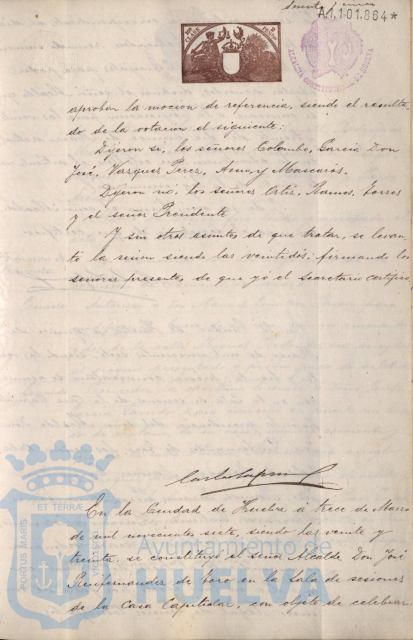 A.1.101.864*
aprobar la mocion de referencia, siendo el resulta-
do de la votacion el siguiente:
Dijeron si, los señores Colombo, Garcia Don
José, Vazquez Perez, y Mascarós.
Dijeron no: los señores Ortiz, Ramos, Torres
y el señor Presidente
Y sin otros asuntos de que tratar, se levan-
tó la sesion siendo las veintidós; firmando los
señores presentes, de que yó el secretario certifico.
En la Ciudad de Huelva á trece de Marzo
de mil novecientos siete, siendo las veinte y
treinta se constituyó el señor Alcalde Don José
de Toro en la Sala de sesiones
de la Casa Capitular, con objeto de celebrar
ET TERRÆ
PORTUS MARIS
Ayuntamiento de
HUELVA